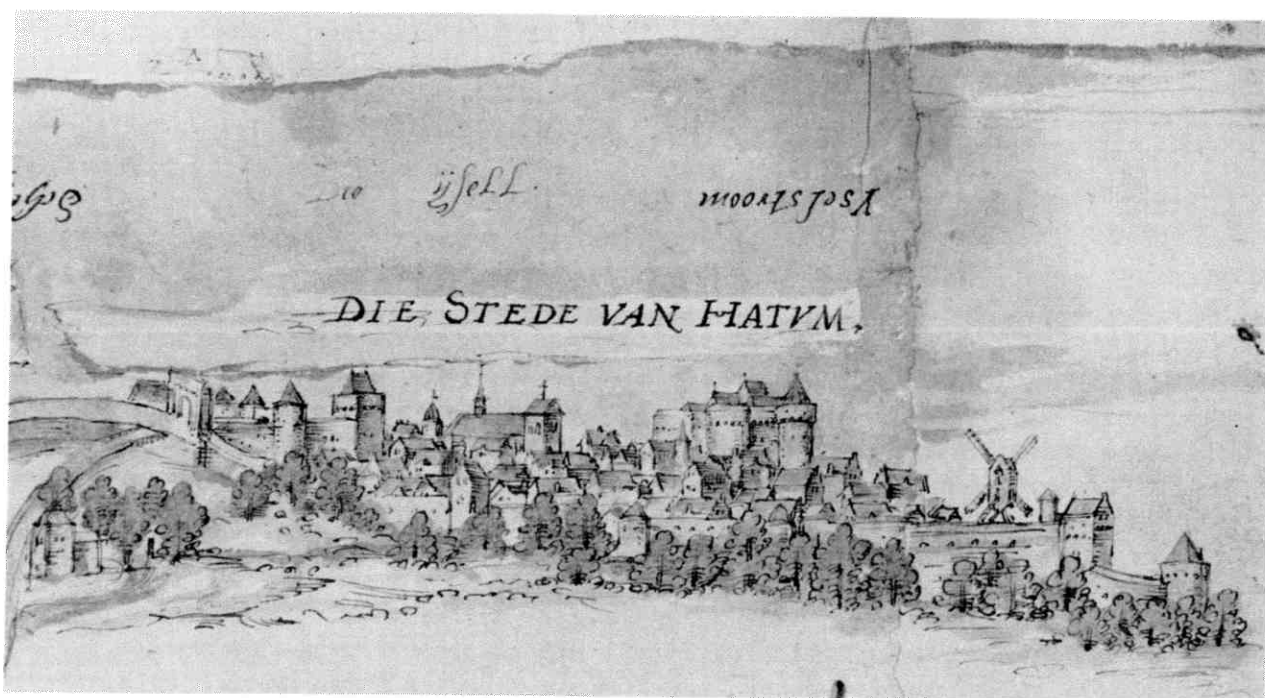 Die ijsell.
Yselstroom
DIE STEDE VAN HATVM.